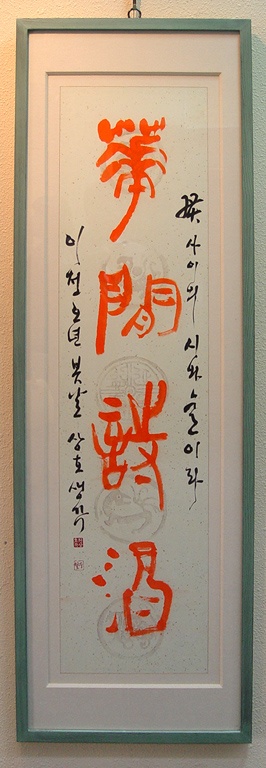 꽃 사이의 시와 술이라
華間詩酒
이천오년 봄날 상호